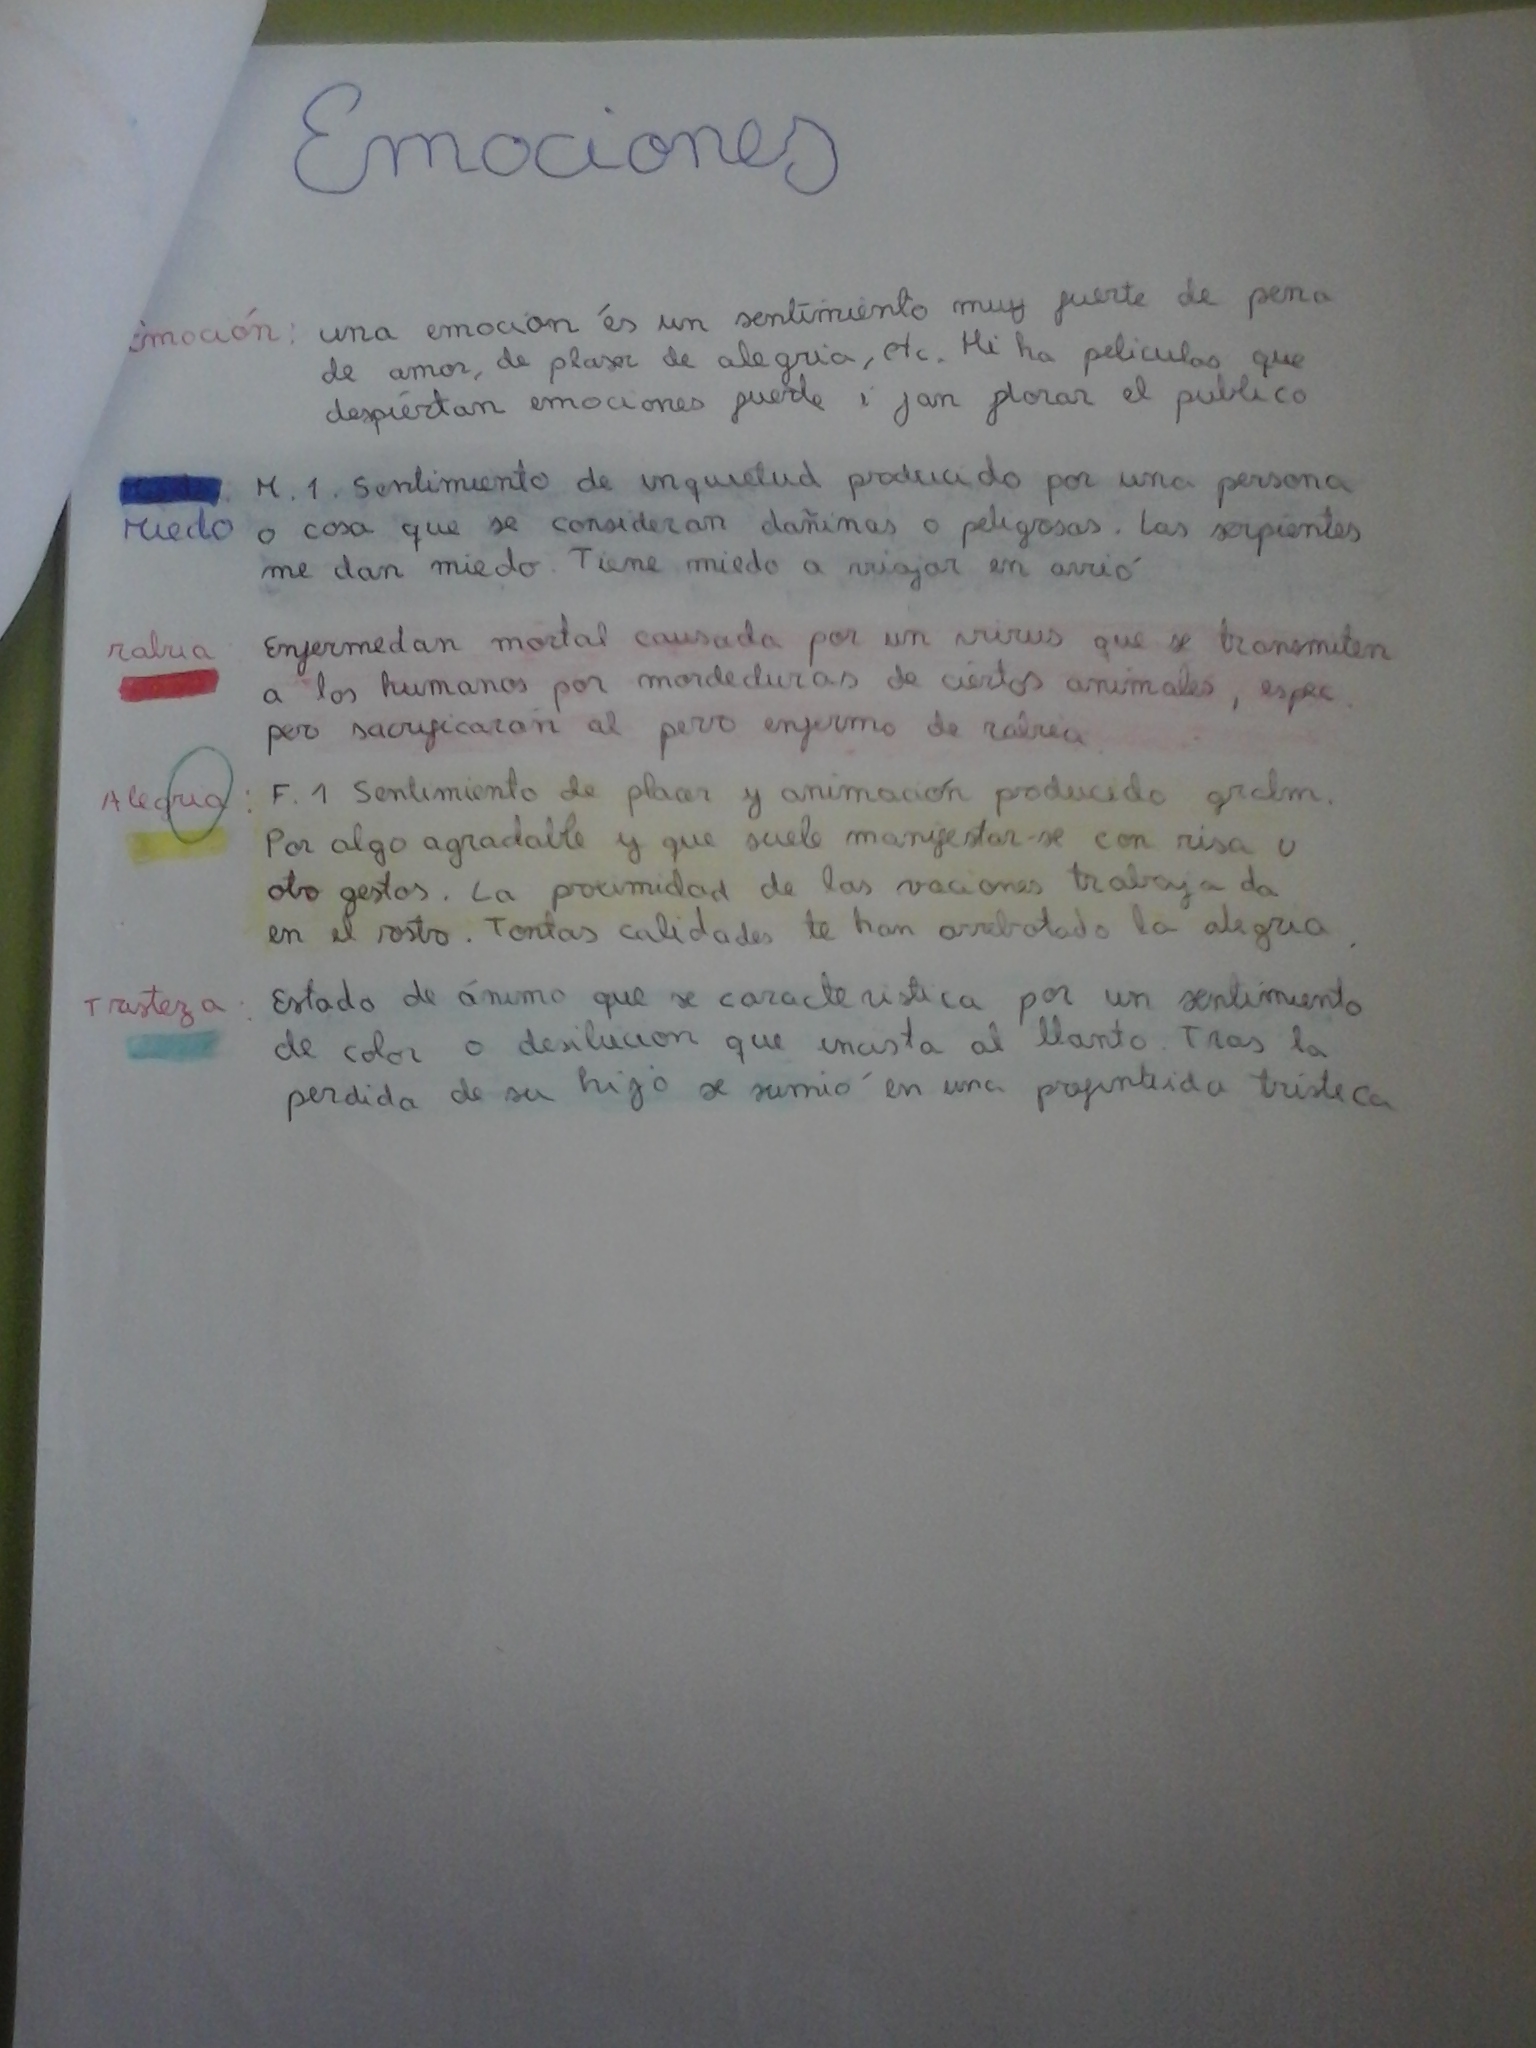 Emociones
Emoción: una emocion és un sentimiento muy fuerte de pena
de amor, de plaser de alegria, etc. Hi ha peliculas que
despiértan emociones fuerte i fan plorar el público
M.1. Sentimiento de inquietud producido por una persona
Miedo o cosa que se consideran dañinas o peligrosas. Las serpientes
me dan miedo. Tiene miedo a viajar en avió
rabia Enfermedan mortal causada por un virus que se transmiten
a los humanos por mordeduras de ciértos animales, espec.
pero sacrificaran al perro enfermo de rabia
Alegria: F. 1 Sentimiento de placer y animación producido gralm.
Por algo agradable y que suele manifestar-se con risa u
otro gestos. La proximidad de las vaciones trabaja da
en el rostro. Tantas calidades te han arrebatado la alegria.
Tristeza: Estado de ánimo que se caracteristica por un sentimiento
de color o desilucion que incista al llanto. Tras la
perdida de su hijo se sumió en una tristeca